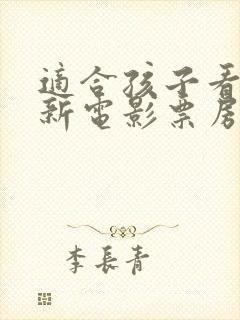 適合孩子看
新電影票房
李長青